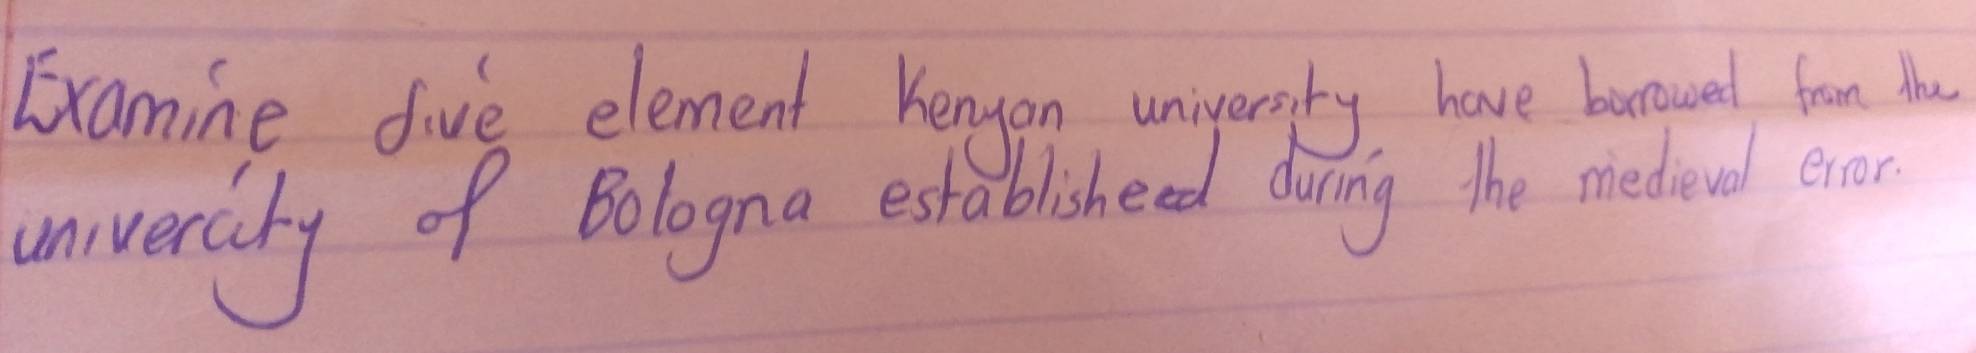 Examine five element Kenyan university have borrowed from the
univercity of Bologna establisheed during the medieval error.